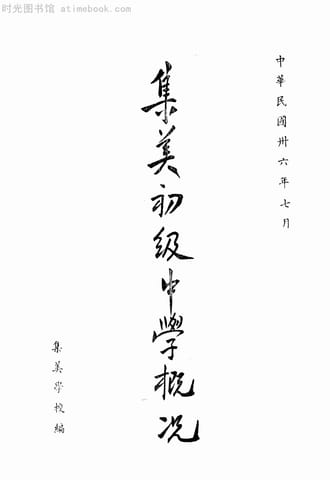 时光图书馆 atimebook.com
中華民國卅六年七月
集美初级中學概况
集美學校編